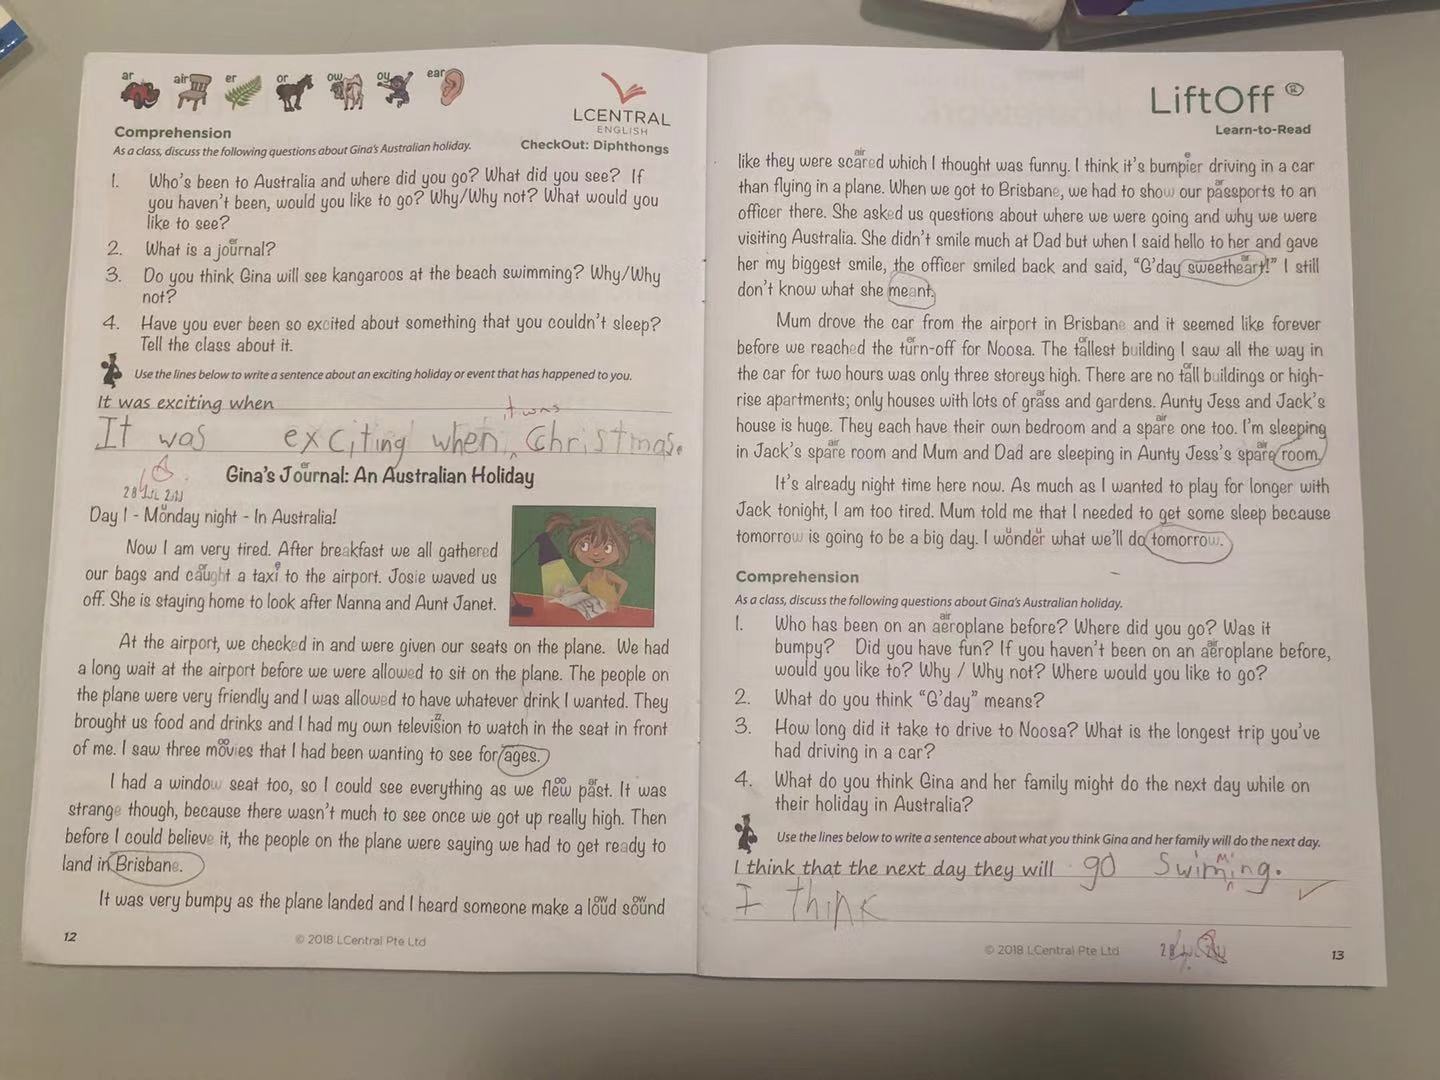 ar air er or ow oy ear
LCENTRAL
ENGLISH
CheckOut: Diphthongs
Comprehension
As a class, discuss the following questions about Gina's Australian holiday.
1. Who's been to Australia and where did you go? What did you see? If
you haven't been, would you like to go? Why/Why not? What would you
like to see?
2. What is a journal?
3. Do you think Gina will see kangaroos at the beach swimming? Why/Why
not?
4. Have you ever been so excited about something that you couldn't sleep?
Tell the class about it.
Use the lines below to write a sentence about an exciting holiday or event that has happened to you.
It was exciting when
it was
It was exciting when Christmas.
Gina's Journal: An Australian Holiday
Day 1 - Monday night - In Australia!
Now I am very tired. After breakfast we all gathered
our bags and caught a taxi to the airport. Josie waved us
off. She is staying home to look after Nanna and Aunt Janet.
At the airport, we checked in and were given our seats on the plane. We had
a long wait at the airport before we were allowed to sit on the plane. The people on
the plane were very friendly and I was allowed to have whatever drink I wanted. They
brought us food and drinks and I had my own television to watch in the seat in front
of me. I saw three movies that I had been wanting to see for ages.
I had a window seat too, so I could see everything as we flew past. It was
strange though, because there wasn't much to see once we got up really high. Then
before I could believe it, the people on the plane were saying we had to get ready to
land in Brisbane.
It was very bumpy as the plane landed and I heard someone make a loud sound
12
© 2018 LCentral Pte Ltd
LiftOff ®
Learn-to-Read
like they were scared which I thought was funny. I think it's bumpier driving in a car
than flying in a plane. When we got to Brisbane, we had to show our passports to an
officer there. She asked us questions about where we were going and why we were
visiting Australia. She didn't smile much at Dad but when I said hello to her and gave
her my biggest smile, the officer smiled back and said, "G'day sweetheart!" I still
don't know what she meant.
Mum drove the car from the airport in Brisbane and it seemed like forever
before we reached the turn-off for Noosa. The tallest building I saw all the way in
the car for two hours was only three storeys high. There are no tall buildings or high-
rise apartments; only houses with lots of grass and gardens. Aunty Jess and Jack's
house is huge. They each have their own bedroom and a spare one too. I'm sleeping
in Jack's spare room and Mum and Dad are sleeping in Aunty Jess's spare room.
It's already night time here now. As much as I wanted to play for longer with
Jack tonight, I am too tired. Mum told me that I needed to get some sleep because
tomorrow is going to be a big day. I wonder what we'll do tomorrow.
Comprehension
As a class, discuss the following questions about Gina's Australian holiday.
1. Who has been on an aeroplane before? Where did you go? Was it
bumpy? Did you have fun? If you haven't been on an aeroplane before,
would you like to? Why / Why not? Where would you like to go?
2. What do you think "G'day" means?
3. How long did it take to drive to Noosa? What is the longest trip you've
had driving in a car?
4. What do you think Gina and her family might do the next day while on
their holiday in Australia?
Use the lines below to write a sentence about what you think Gina and her family will do the next day.
I think that the next day they will go swiming.
I think
© 2018 LCentral Pte Ltd
13